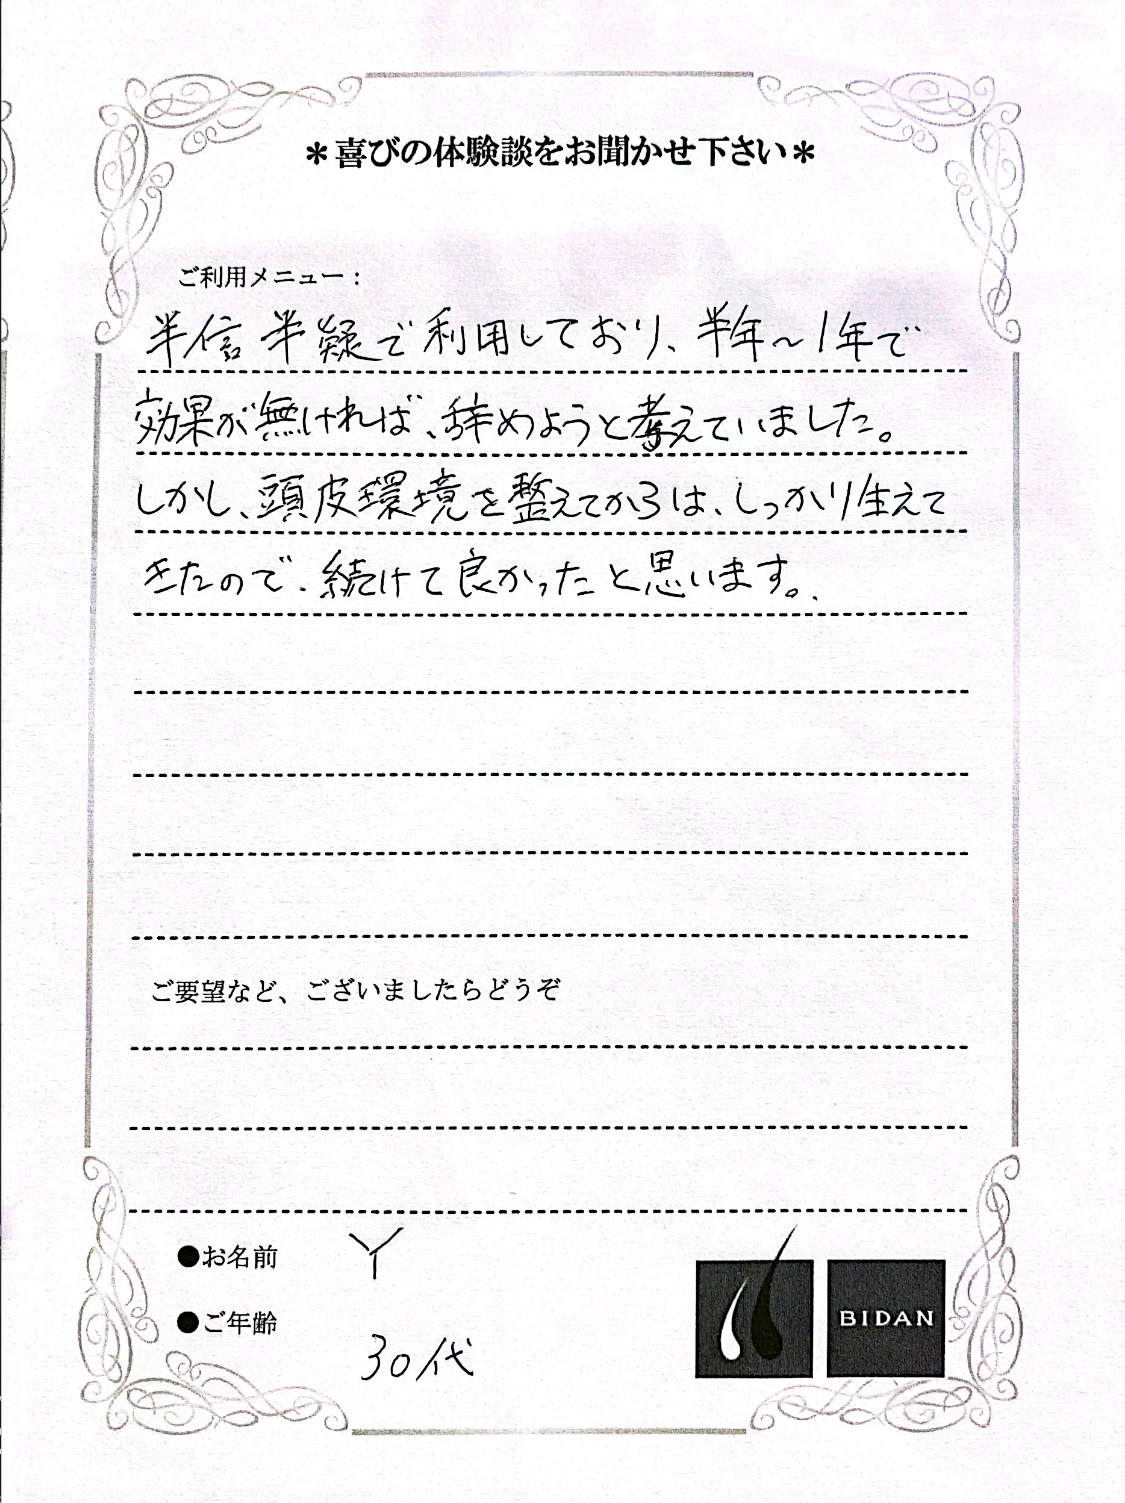 ＊喜びの体験談をお聞かせ下さい＊
ご利用メニュー：
半信半疑で利用しており、半年～1年で
効果が無ければ、辞めようと考えていました。
しかし、頭皮環境を整えてからは、しっかり生えて
きたので、続けて良かったと思います。
ご要望など、ございましたらどうぞ
●お名前 Y
●ご年齢 30代
BIDAN